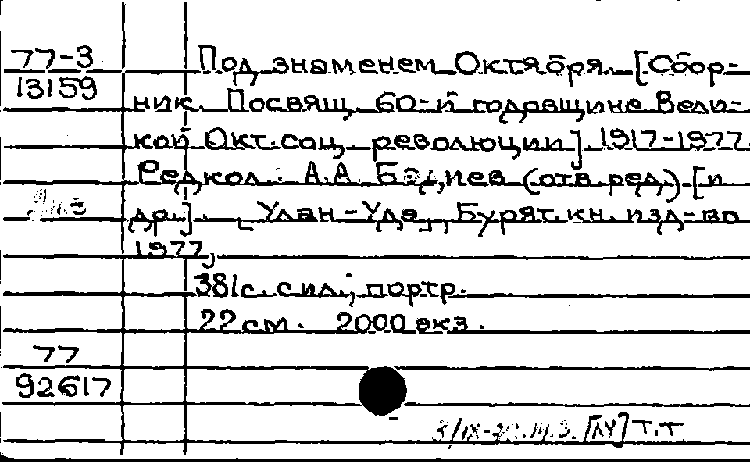 77-3 Под знаменем Октября. [Сбор-
13159 ник. Посвящ. 60-й годовщине Вели-
кой Окт. соц. революции]. 1917-1977.
Редкол.: А.А. Бадиев (отв. ред.) [и
др.]. Улан-Удэ, Бурят. кн. изд-во
1977,
381 с. с ил.; портр.
22 см. 2000 экз.
77
92617
Т.Т